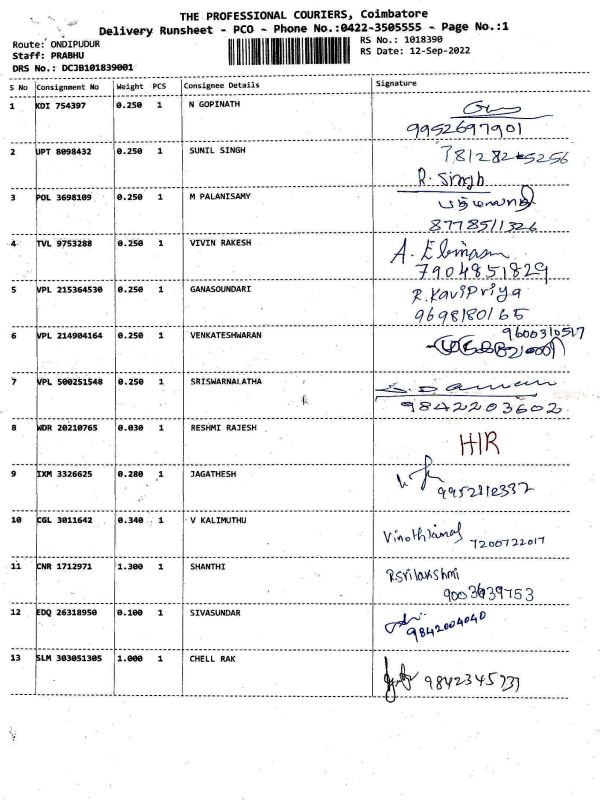 THE PROFESSIONAL COURIERS, Coimbatore
Delivery Runsheet - PCO - Phone No.:0422-3505555 - Page No.:1
Route: ONDIPUDUR
RS No.: 1018390
Staff: PRABHU
RS Date: 12-Sep-2022
DRS No.: DCJB101839001
S No Consignment No Weight PCS Consignee Details Signature
1 KDI 754397 0.250 1 N GOPINATH
9952697901
2 UPT 8098432 0.250 1 SUNIL SINGH
R. Singh
3 POL 3698109 0.250 1 M PALANISAMY
8778511326
4 TVL 9753288 0.250 1 VIVIN RAKESH
7904851829
5 VPL 215364530 0.250 1 GANASOUNDARI
R. KaviPriya
9698180165
6 VPL 214904164 0.250 1 VENKATESHWARAN
9600310517
7 VPL 500251548 0.250 1 SRISWARNALATHA
9842203602
8 WDR 20210765 0.030 1 RESHMI RAJESH
H/R
9 IXM 3326625 0.280 1 JAGATHESH
10 CGL 3011642 0.340 1 V KALIMUTHU
7200722017
11 CNR 1712971 1.300 1 SHANTHI
R Srilakshmi
12 EDQ 26318950 0.100 1 SIVASUNDAR
9842004040
13 SLM 303051305 1.000 1 CHELL RAK